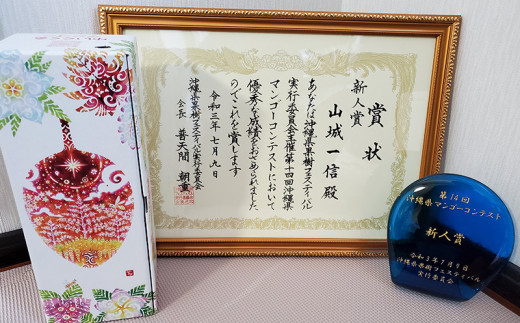 賞状
新人賞
山城一信殿
あなたは沖縄県果樹フェスティバル
実行委員会主催第十四回沖縄県
マンゴーコンテストにおいて
優秀な成績をおさめられました
のでこれを賞します
令和三年七月九日
沖縄県果樹フェスティバル実行委員会
会長 普天間 朝重
第14回
沖縄県マンゴーコンテスト
新人賞
令和3年7月9日
沖縄県果樹フェスティバル
実行委員会